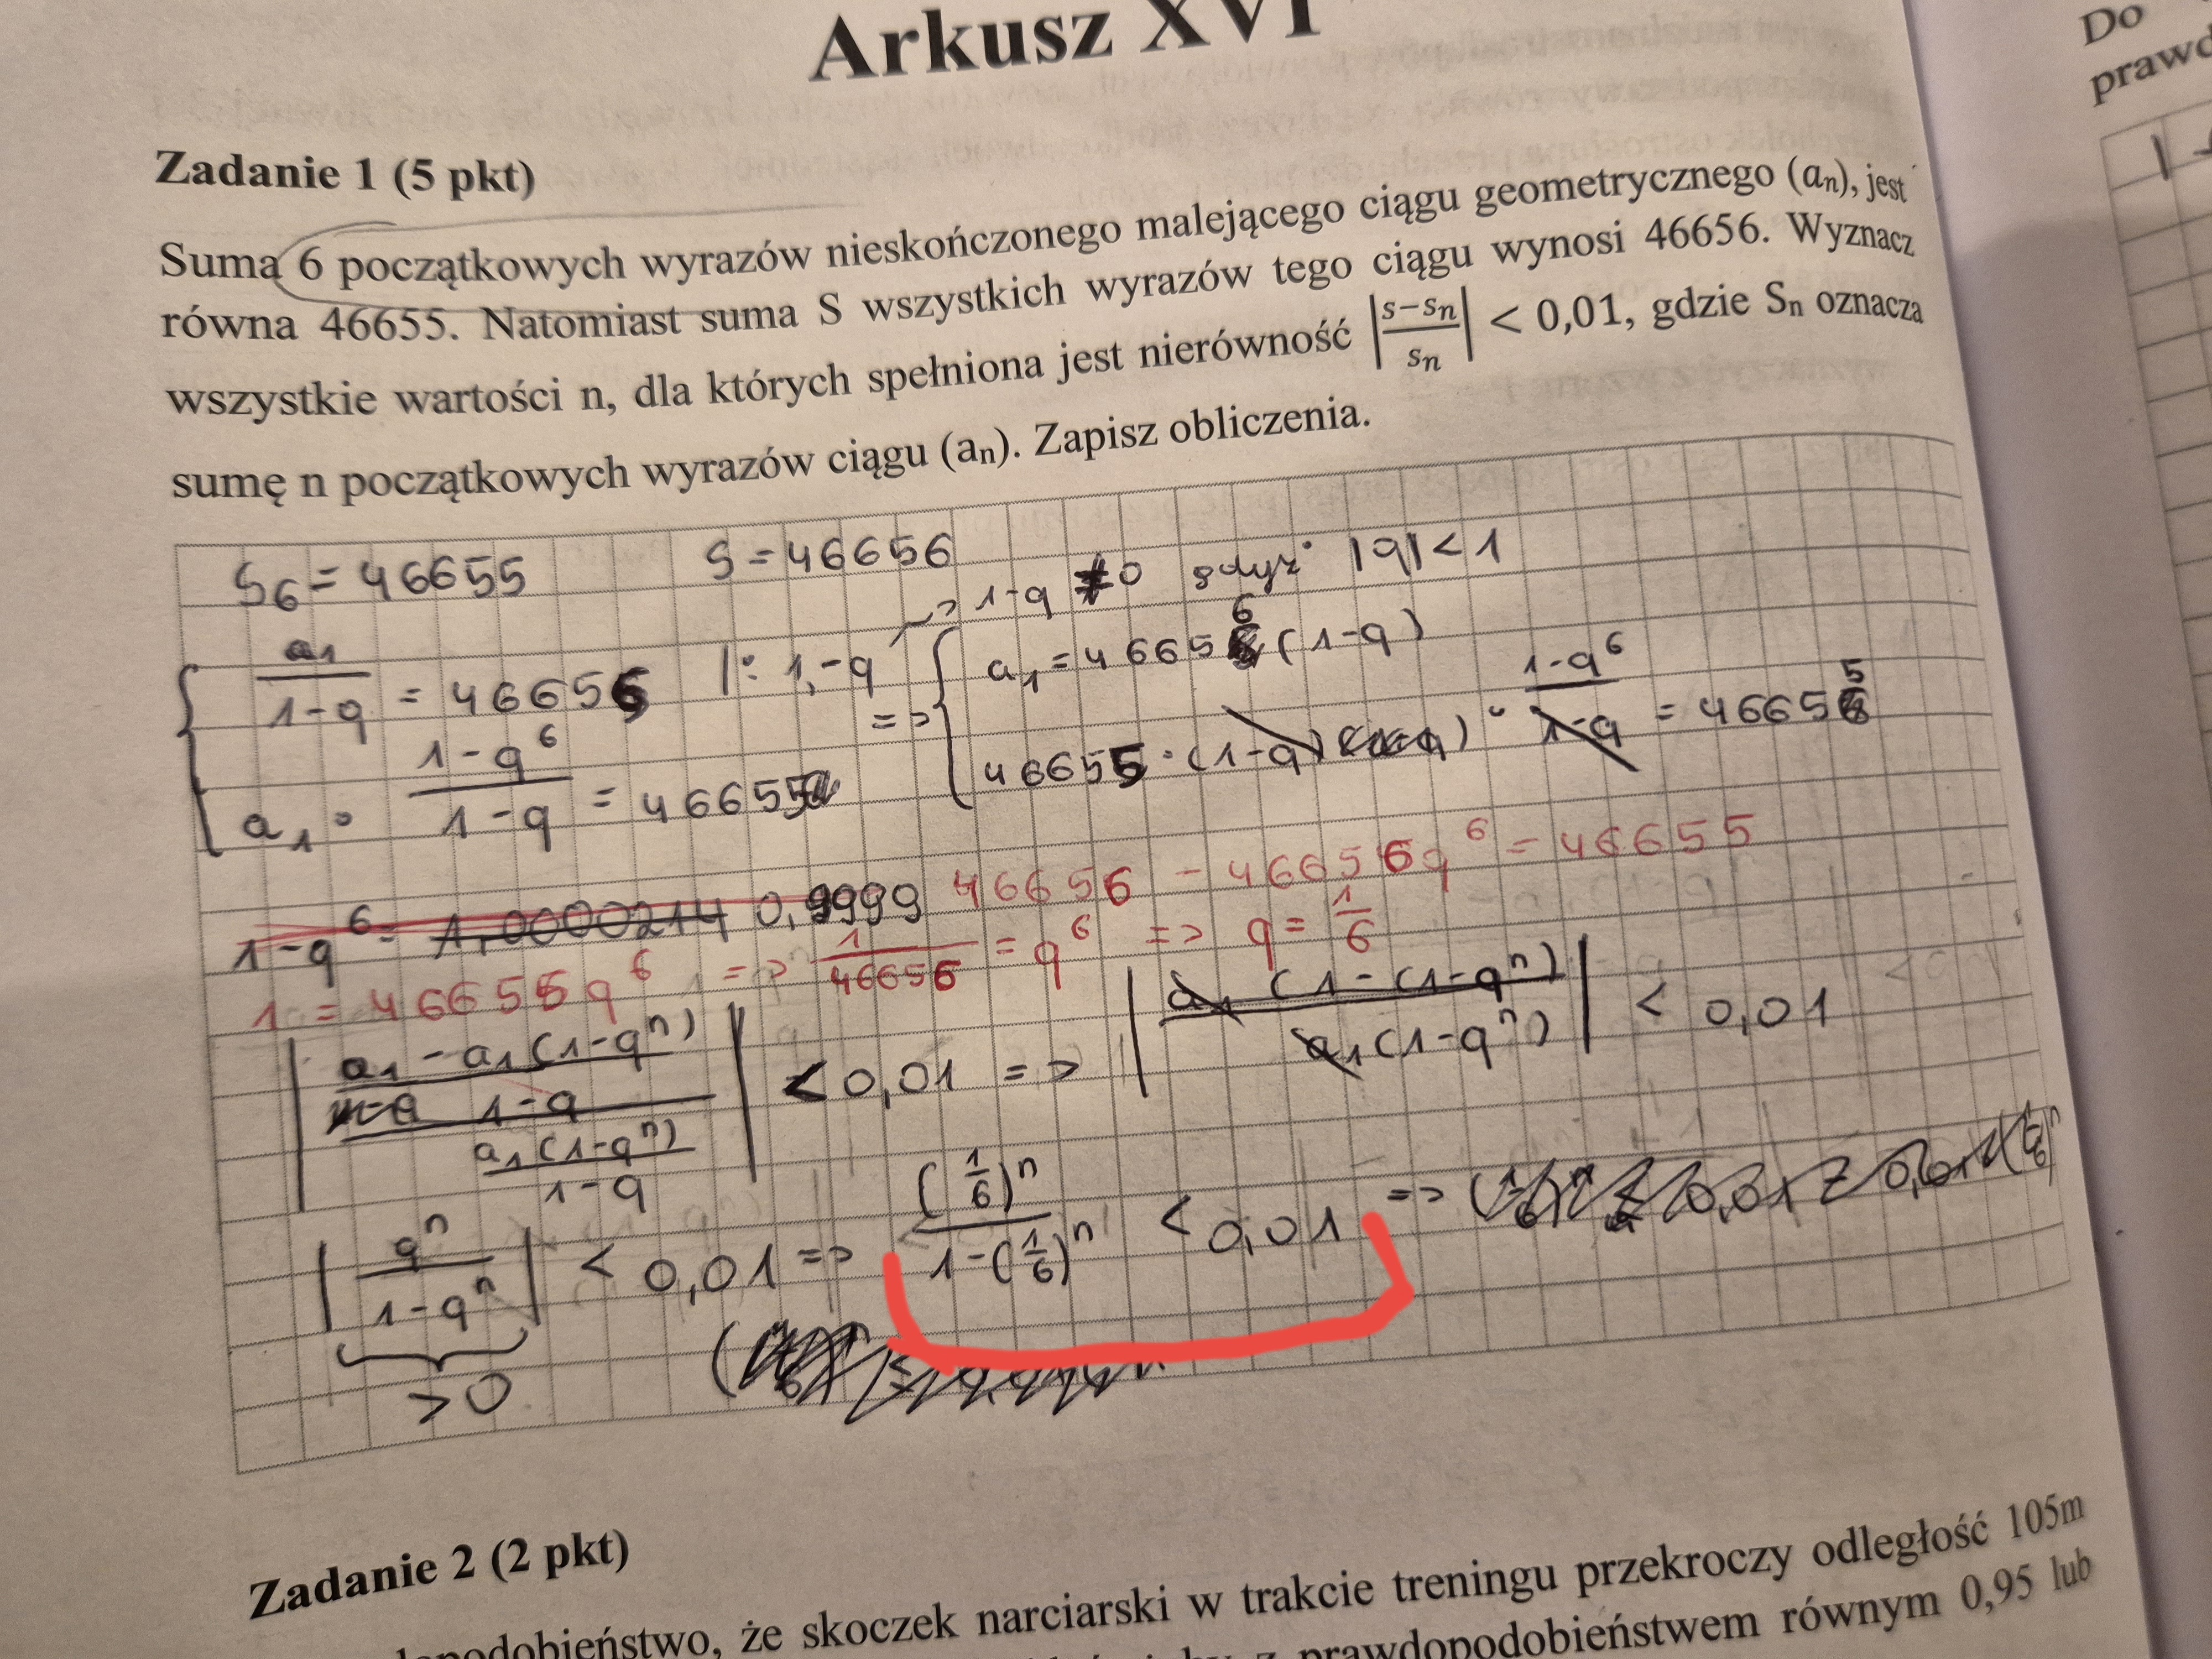 Arkusz XVI
Do
Zadanie 1 (5 pkt)
Suma 6 początkowych wyrazów nieskończonego malejącego ciągu geometrycznego (aₙ), jest
równa 46655. Natomiast suma S wszystkich wyrazów tego ciągu wynosi 46656. Wyznacz
wszystkie wartości n, dla których spełniona jest nierówność |(s−sₙ)/sₙ| < 0,01, gdzie Sₙ oznacza
sumę n początkowych wyrazów ciągu (aₙ). Zapisz obliczenia.
S₆ = 46655 S = 46656
→ 1-q ≠ 0 gdyż |q| < 1
a₁/(1-q) = 46656 |: 1-q => a₁ = 46656 (1-q)
a₁ · (1-q⁶)/(1-q) = 46655 46655 · (1-q) · (1-q⁶)/(1-q) = 46655
1-q⁶ = 1,0000214 0,9999 46656 - 46656q⁶ = 46655
1 = 46656q⁶ => 1/46656 = q⁶ => q = 1/6
|((a₁ - a₁(1-qⁿ))/(1-q))/((a₁(1-qⁿ))/(1-q))| < 0,01 => |(a₁ (1-(1-qⁿ))/(a₁(1-qⁿ))| < 0,01
|qⁿ/(1-qⁿ)| < 0,01 => (1/6)ⁿ/(1-(1/6)ⁿ) < 0,01 =>
>0
Zadanie 2 (2 pkt)
że skoczek narciarski w trakcie treningu przekroczy odległość 105m
z prawdopodobieństwem równym 0,95 lub